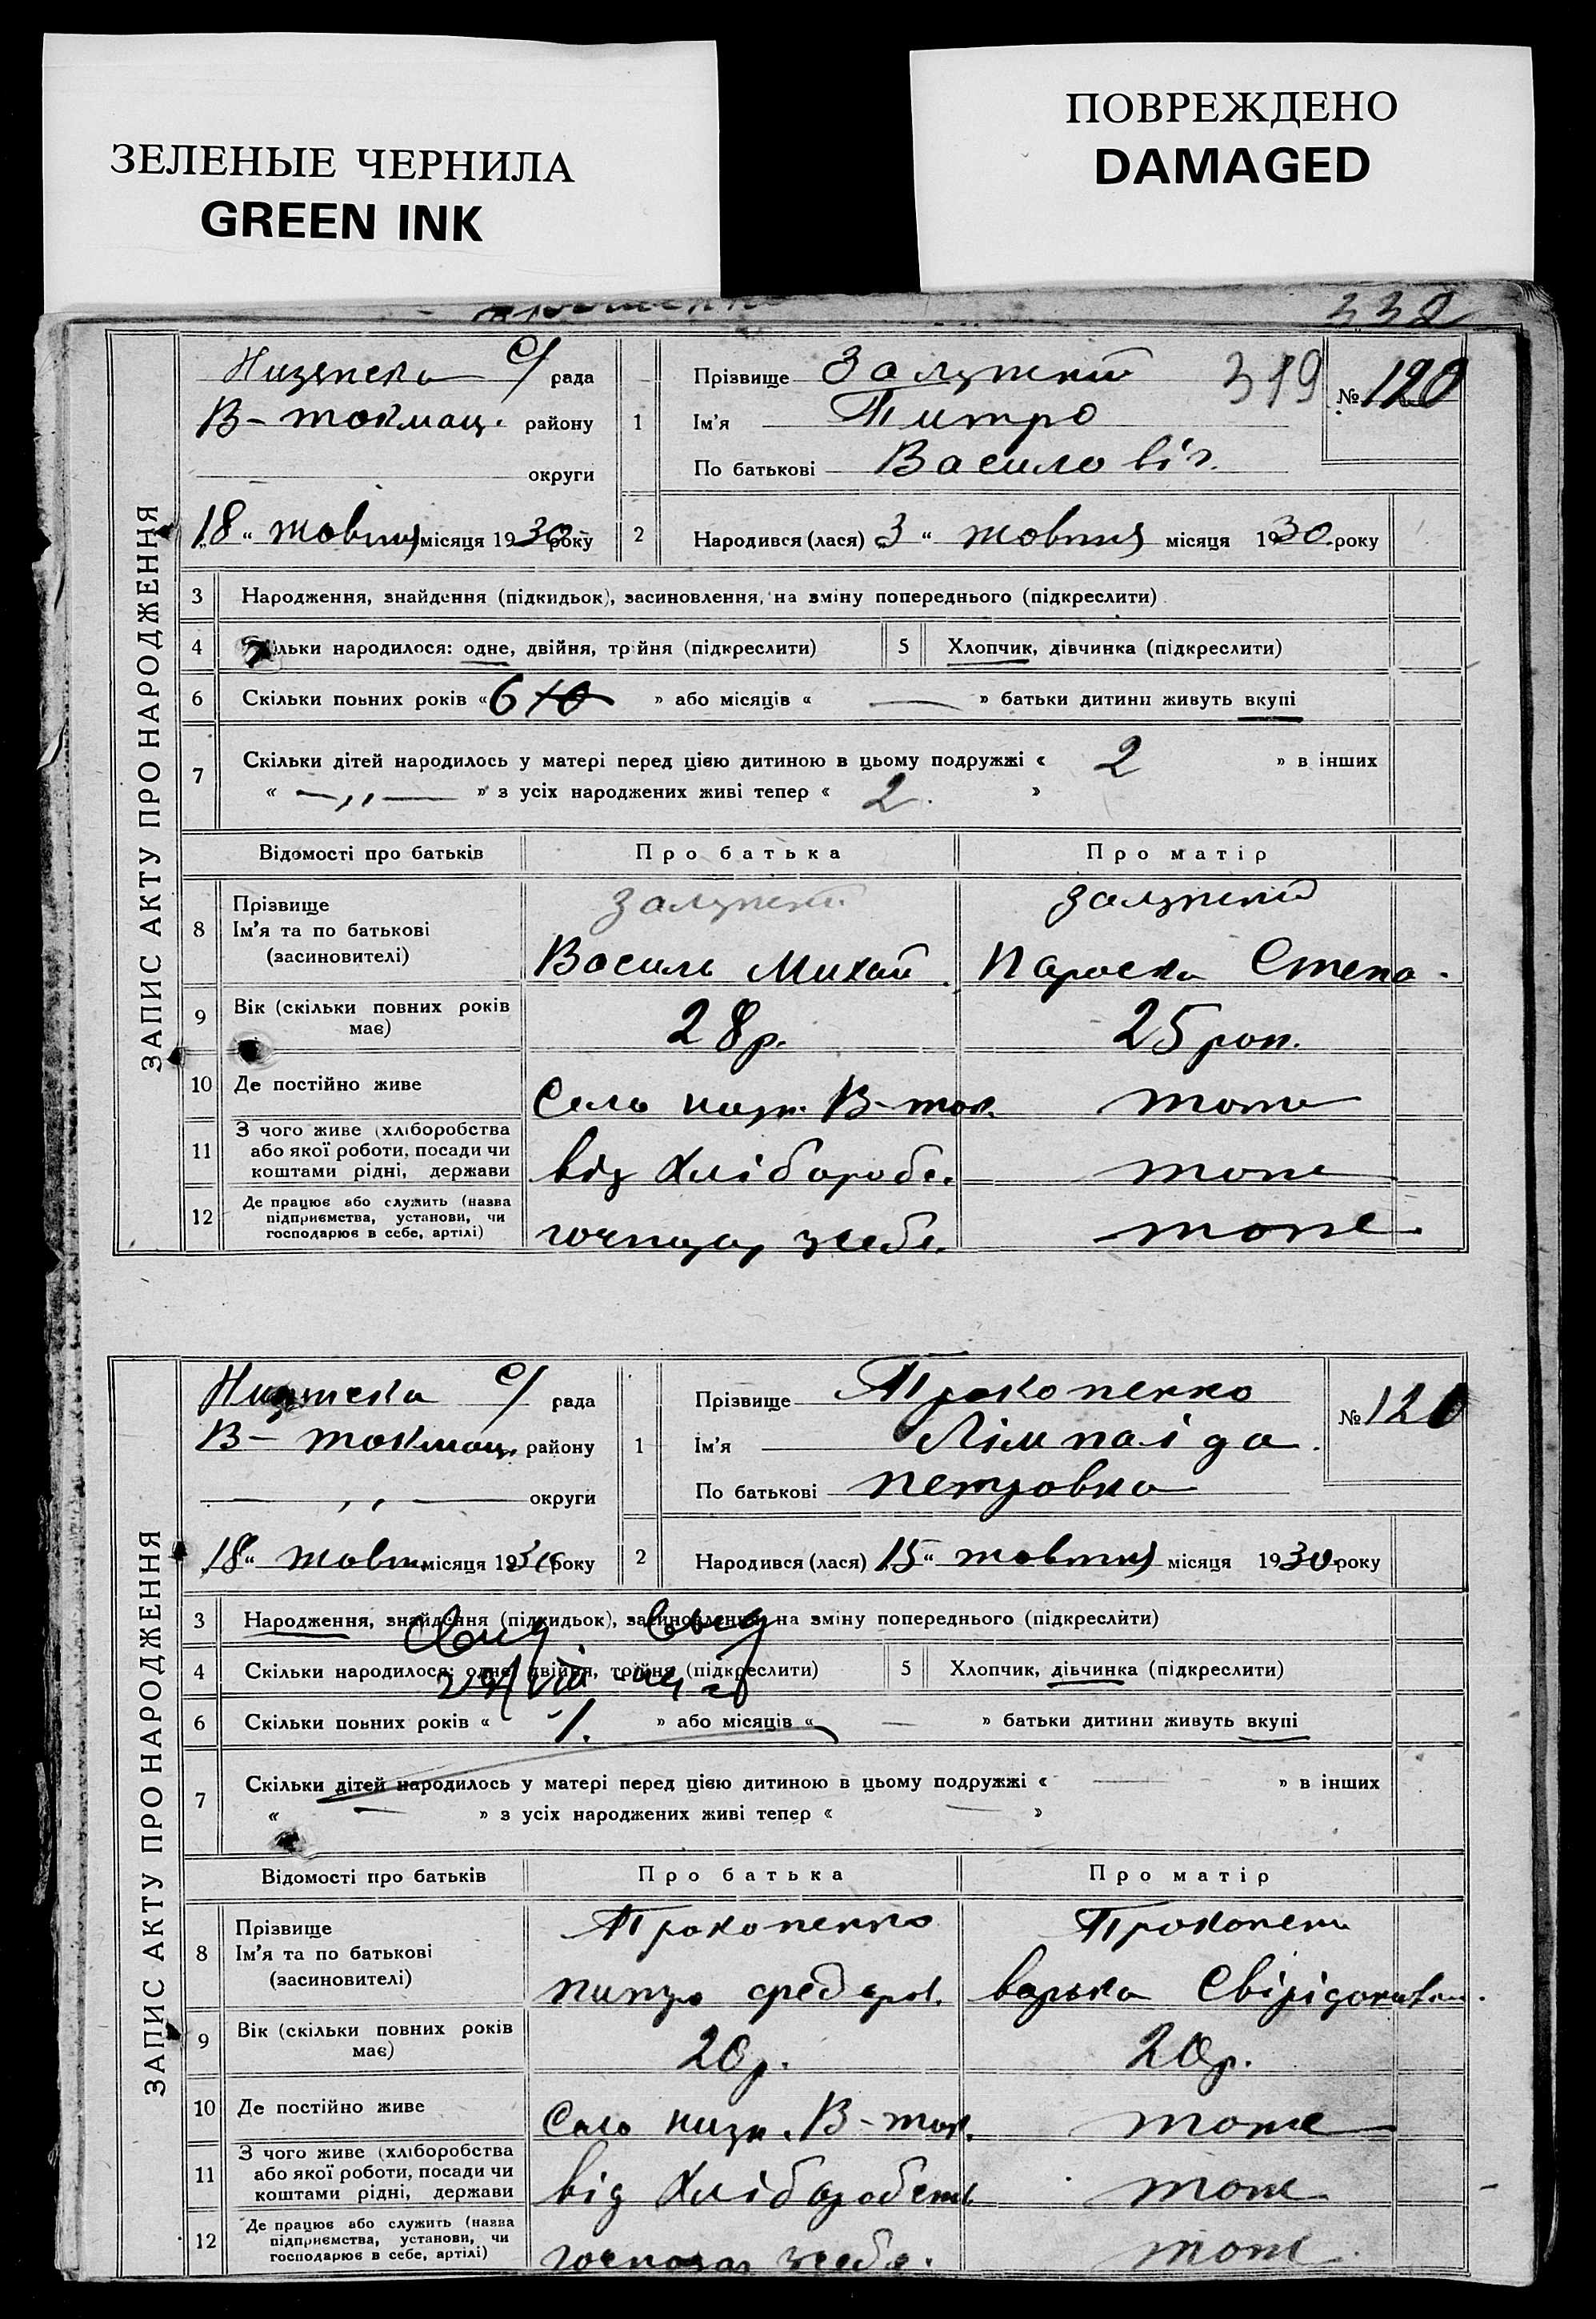 ЗЕЛЕНЫЕ ЧЕРНИЛА
GREEN INK
ПОВРЕЖДЕНО
DAMAGED
332
ЗАПИС АКТУ ПРО НАРОДЖЕННЯ
с/ рада
В-токмац. району
округи
18 " жовтня місяця 1930 року
1
Прізвище
319
Ім'я
По батькові Василовіч.
№ 120
2
Народився (лася) 3 " жовтня місяця 1930 року
3 Народження, знайдення (підкидьок), засиновлення, на зміну попереднього (підкреслити)
4 Скільки народилося: одне, двійня, трійня (підкреслити)
5 Хлопчик, дівчинка (підкреслити)
6 Скільки повних років « 6 10 » або місяців « — » батьки дитини живуть вкупі
7 Скільки дітей народилось у матері перед цією дитиною в цьому подружжі « 2 » в інших
« —„— » з усіх народжених живі тепер « 2. »
Відомості про батьків Про батька Про матір
8 Прізвище
Ім'я та по батькові
(засиновителі)
Василь Михай. Параска Степа.
9 Вік (скільки повних років має) 28 р. 25 рок.
10 Де постійно живе Село низя. В-ток. тоже
11 З чого живе (хліборобства або якої роботи, посади чи коштами рідні, держави від хлібороб. тоже
12 Де працює або служить (назва підприємства, установи, чи господарює в себе, артілі) тоже
ЗАПИС АКТУ ПРО НАРОДЖЕННЯ
с/ рада
В-токмац. району
—„— округи
18 " жовтн. місяця 1930 року
1
Прізвище Прокопенко
Ім'я Лімпаіда.
По батькові Петровна
№ 120
2
Народився (лася) 15 " жовтня місяця 1930 року
3 Народження, знайдення (підкидьок), засиновлення, на зміну попереднього (підкреслити)
4 Скільки народилося: одне, двійня, трійня (підкреслити)
5 Хлопчик, дівчинка (підкреслити)
6 Скільки повних років « 1. » або місяців « — » батьки дитини живуть вкупі
7 Скільки дітей народилось у матері перед цією дитиною в цьому подружжі « — » в інших
« — » з усіх народжених живі тепер « — »
Відомості про батьків Про батька Про матір
8 Прізвище
Ім'я та по батькові
(засиновителі)
Прокопенко Прокопенк
варька
9 Вік (скільки повних років має) 20 р. 20 р.
10 Де постійно живе Село низя. В-ток. тоже
11 З чого живе (хліборобства або якої роботи, посади чи коштами рідні, держави від хліборобств. тоже
12 Де працює або служить (назва підприємства, установи, чи господарює в себе, артілі) тоже